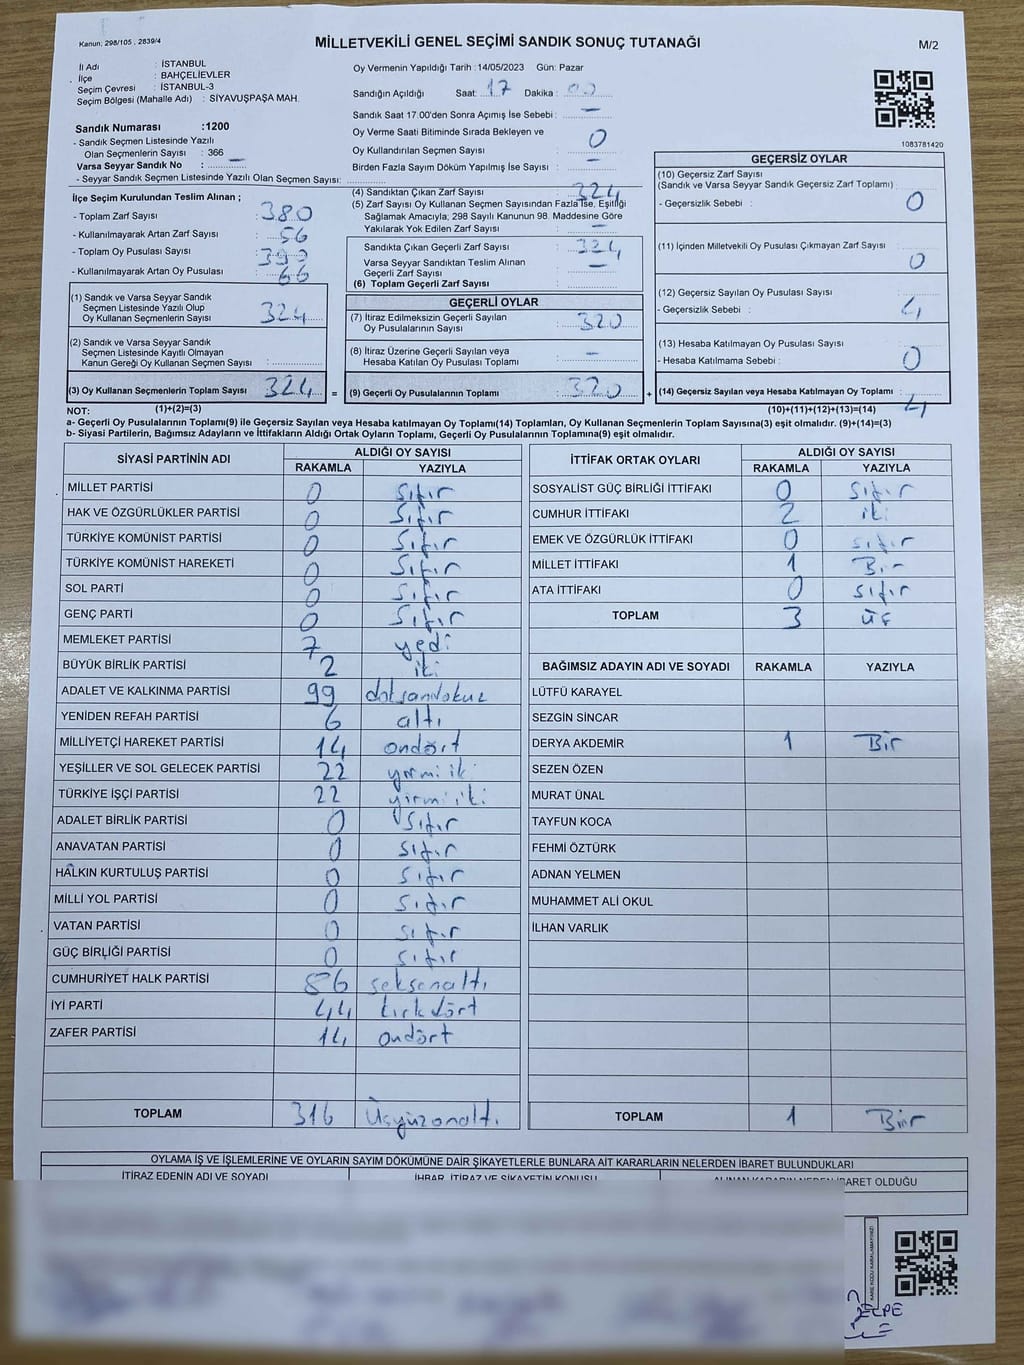 Kanun: 298/105 , 2839/4
MİLLETVEKİLİ GENEL SEÇİMİ SANDIK SONUÇ TUTANAĞI
M/2
İl Adı : İSTANBUL
İlçe : BAHÇELİEVLER
Seçim Çevresi : İSTANBUL-3
Seçim Bölgesi (Mahalle Adı) : SİYAVUŞPAŞA MAH.
Oy Vermenin Yapıldığı Tarih :14/05/2023 Gün: Pazar
Sandığın Açıldığı Saat: 17 Dakika : 00
Sandık Saat 17:00'den Sonra Açımış İse Sebebi : –
Oy Verme Saati Bitiminde Sırada Bekleyen ve
Oy Kullandırılan Seçmen Sayısı : 0
Birden Fazla Sayım Döküm Yapılmış İse Sayısı : –
Sandık Numarası :1200
- Sandık Seçmen Listesinde Yazılı
Olan Seçmenlerin Sayısı : 366
Varsa Seyyar Sandık No : –
- Seyyar Sandık Seçmen Listesinde Yazılı Olan Seçmen Sayısı:
1083781420
İlçe Seçim Kurulundan Teslim Alınan ;
- Toplam Zarf Sayısı : 380
- Kullanılmayarak Artan Zarf Sayısı : 56
- Toplam Oy Pusulası Sayısı : 390
- Kullanılmayarak Artan Oy Pusulası : 66
(1) Sandık ve Varsa Seyyar Sandık
Seçmen Listesinde Yazılı Olup
Oy Kullanan Seçmenlerin Sayısı : 324
(2) Sandık ve Varsa Seyyar Sandık
Seçmen Listesinde Kayıtlı Olmayan
Kanun Gereği Oy Kullanan Seçmen Sayısı :
(3) Oy Kullanan Seçmenlerin Toplam Sayısı 324 =
(4) Sandıktan Çıkan Zarf Sayısı : 324
(5) Zarf Sayısı Oy Kullanan Seçmen Sayısından Fazla İse, Eşitliği
Sağlamak Amacıyla; 298 Sayılı Kanunun 98. Maddesine Göre
Yakılarak Yok Edilen Zarf Sayısı : –
Sandıkta Çıkan Geçerli Zarf Sayısı : 324
Varsa Seyyar Sandıktan Teslim Alınan
Geçerli Zarf Sayısı : –
(6) Toplam Geçerli Zarf Sayısı :
GEÇERLİ OYLAR
(7) İtiraz Edilmeksizin Geçerli Sayılan
Oy Pusulalarının Sayısı : 320
(8) İtiraz Üzerine Geçerli Sayılan veya
Hesaba Katılan Oy Pusulası Toplamı : –
(9) Geçerli Oy Pusulalarının Toplamı : 320 +
GEÇERSİZ OYLAR
(10) Geçersiz Zarf Sayısı
(Sandık ve Varsa Seyyar Sandık Geçersiz Zarf Toplamı) :
- Geçersizlik Sebebi : 0
(11) İçinden Milletvekili Oy Pusulası Çıkmayan Zarf Sayısı
: 0
(12) Geçersiz Sayılan Oy Pusulası Sayısı :
- Geçersizlik Sebebi : 4
(13) Hesaba Katılmayan Oy Pusulası Sayısı :
- Hesaba Katılmama Sebebi : 0
(14) Geçersiz Sayılan veya Hesaba Katılmayan Oy Toplamı : 4
NOT: (1)+(2)=(3)
(10)+(11)+(12)+(13)=(14)
a- Geçerli Oy Pusulalarının Toplamı(9) ile Geçersiz Sayılan veya Hesaba katılmayan Oy Toplamı(14) Toplamları, Oy Kullanan Seçmenlerin Toplam Sayısına(3) eşit olmalıdır. (9)+(14)=(3)
b- Siyasi Partilerin, Bağımsız Adayların ve İttifakların Aldığı Ortak Oyların Toplamı, Geçerli Oy Pusulalarının Toplamına(9) eşit olmalıdır.
SİYASİ PARTİNİN ADI ALDIĞI OY SAYISI
RAKAMLA YAZIYLA
MİLLET PARTİSİ 0 sıfır
HAK VE ÖZGÜRLÜKLER PARTİSİ 0 sıfır
TÜRKİYE KOMÜNİST PARTİSİ 0 sıfır
TÜRKİYE KOMÜNİST HAREKETİ 0 sıfır
SOL PARTİ 0 sıfır
GENÇ PARTİ 0 sıfır
MEMLEKET PARTİSİ 7 yedi
BÜYÜK BİRLİK PARTİSİ 2 iki
ADALET VE KALKINMA PARTİSİ 99 doksandokuz
YENİDEN REFAH PARTİSİ 6 altı
MİLLİYETÇİ HAREKET PARTİSİ 14 ondört
YEŞİLLER VE SOL GELECEK PARTİSİ 22 yirmi iki
TÜRKİYE İŞÇİ PARTİSİ 22 yirmi iki
ADALET BİRLİK PARTİSİ 0 sıfır
ANAVATAN PARTİSİ 0 sıfır
HALKIN KURTULUŞ PARTİSİ 0 sıfır
MİLLİ YOL PARTİSİ 0 sıfır
VATAN PARTİSİ 0 sıfır
GÜÇ BİRLİĞİ PARTİSİ 0 sıfır
CUMHURİYET HALK PARTİSİ 86 seksenaltı
İYİ PARTİ 44 kırkdört
ZAFER PARTİSİ 14 ondört
TOPLAM 316 Üçyüzonaltı
İTTİFAK ORTAK OYLARI ALDIĞI OY SAYISI
RAKAMLA YAZIYLA
SOSYALİST GÜÇ BİRLİĞİ İTTİFAKI 0 sıfır
CUMHUR İTTİFAKI 2 iki
EMEK VE ÖZGÜRLÜK İTTİFAKI 0 sıfır
MİLLET İTTİFAKI 1 Bir
ATA İTTİFAKI 0 sıfır
TOPLAM 3 üç
BAĞIMSIZ ADAYIN ADI VE SOYADI RAKAMLA YAZIYLA
LÜTFÜ KARAYEL
SEZGİN SİNCAR
DERYA AKDEMİR 1 Bir
SEZEN ÖZEN
MURAT ÜNAL
TAYFUN KOCA
FEHMİ ÖZTÜRK
ADNAN YELMEN
MUHAMMET ALİ OKUL
İLHAN VARLIK
TOPLAM 1 Bir
OYLAMA İŞ VE İŞLEMLERİNE VE OYLARIN SAYIM DÖKÜMÜNE DAİR ŞİKAYETLERLE BUNLARA AİT KARARLARIN NELERDEN İBARET BULUNDUKLARI
İTİRAZ EDENİN ADI VE SOYADI İHBAR, İTİRAZ VE ŞİKAYETİN KONUSU ALINAN KARARIN NEDEN İBARET OLDUĞU
KARE KODU KARALAMAYINIZ!